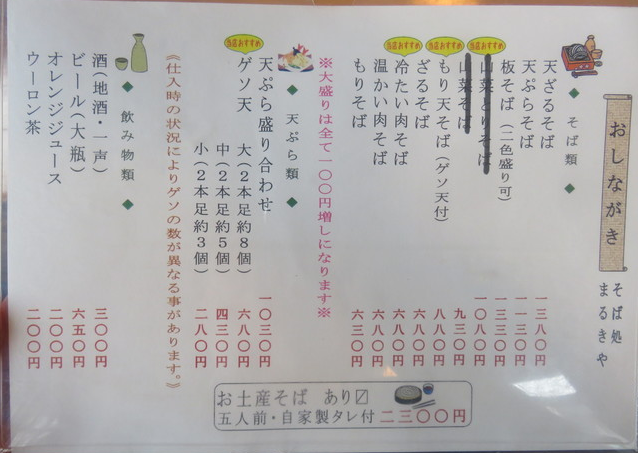 おしながき
そば処 まるきや
◆ そば類 ◆
天ざるそば 一三八〇円
天ぷらそば 一一三〇円
板そば(二色盛り可) 一三三〇円
当店おすすめ 山菜とりそば 一〇八〇円
山菜そば 九三〇円
当店おすすめ もり天そば(ゲソ天付) 八八〇円
ざるそば 六八〇円
当店おすすめ 冷たい肉そば 六八〇円
温かい肉そば 六八〇円
もりそば 六三〇円
※大盛りは全て一〇〇円増しになります※
◆ 天ぷら類 ◆
天ぷら盛り合わせ 一〇三〇円
当店おすすめ ゲソ天 大(2本足約8個) 五三〇円
中(2本足約5個) 四三〇円
小(2本足約3個) 二八〇円
《仕入時の状況によりゲソの数が異なる事があります。》
◆ 飲み物類 ◆
酒(地酒・一声) 三〇〇円
ビール(大瓶) 六五〇円
オレンジジュース 二〇〇円
ウーロン茶 二〇〇円
お土産そば あり〼
五人前・自家製タレ付 二三〇〇円